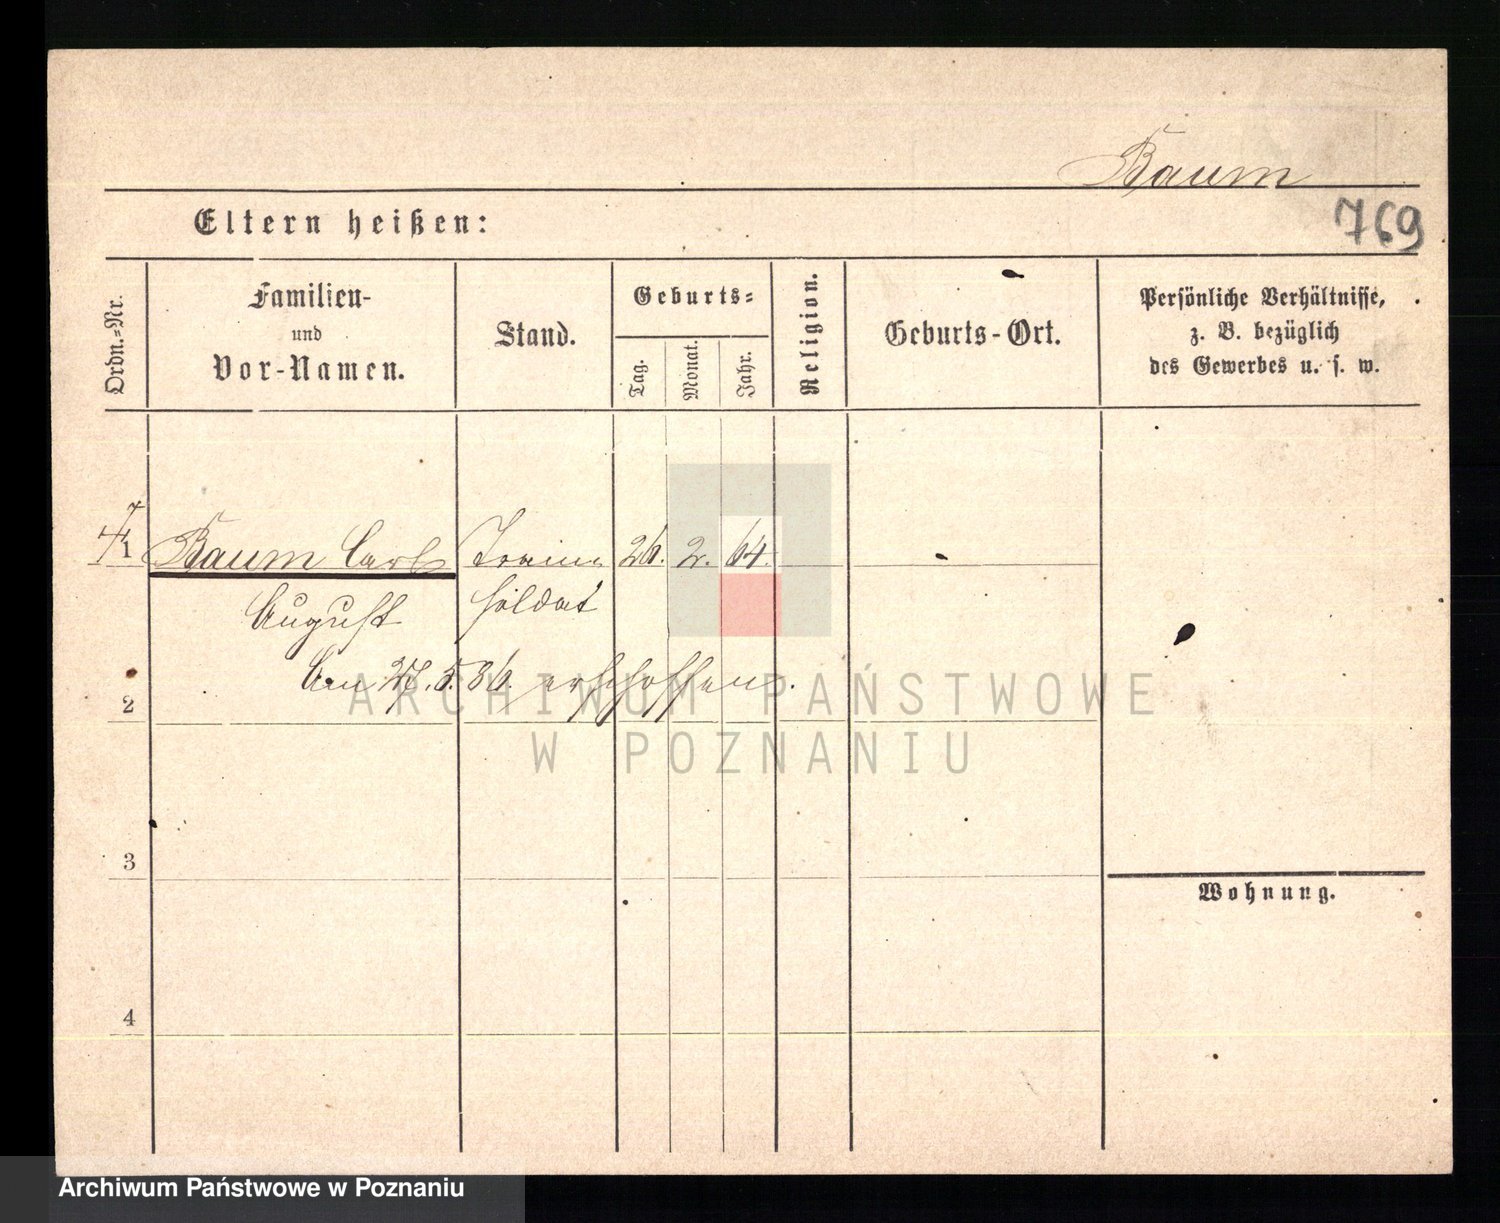 Baum
Eltern heißen:
769
Ordn.-Nr.
Familien-
und
Vor-Namen.
Stand.
Geburts-
Tag.
Monat.
Jahr.
Religion.
Geburts-Ort.
Persönliche Verhältnisse,
z. B. bezüglich
des Gewerbes u. s. w.
1 Baum Carl Train 26. 2. 64.
August soldat
Am 27.5.86. erschossen.
2
ARCHIWUM PAŃSTWOWE
W POZNANIU
3
Wohnung.
4
Archiwum Państwowe w Poznaniu